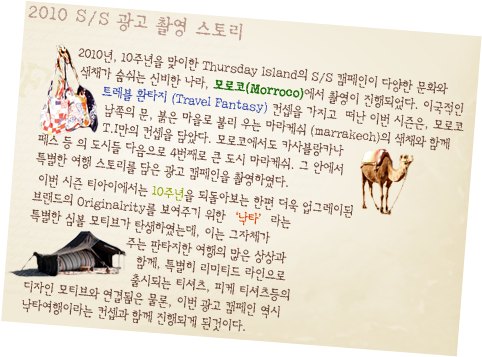 2010 S/S 광고 촬영 스토리
2010년, 10주년을 맞이한 Thursday Island의 S/S 캠페인이 다양한 문화와
색채가 숨쉬는 신비한 나라, 모로코(Morroco)에서 촬영이 진행되었다. 이국적인
트레블 환타지 (Travel Fantasy) 컨셉을 가지고 떠난 이번 시즌은, 모로코
남쪽의 문, 붉은 마을로 불리 우는 마라케쉬 (marrakech)의 색채와 함께
T.I만의 컨셉을 담았다. 모로코에서도 카사블랑카나
페스 등 의 도시들 다음으로 4번째로 큰 도시 마라케쉬. 그 안에서
특별한 여행 스토리를 담은 광고 캠페인을 촬영하였다.
이번 시즌 티아이에서는 10주년을 되돌아보는 한편 더욱 업그레이된
브랜드의 Originalrity를 보여주기 위한 '낙타' 라는
특별한 심볼 모티브가 탄생하였는데, 이는 그자체가
주는 판타지한 여행의 많은 상상과
함께, 특별히 리미티드 라인으로
출시되는 티셔츠, 피케 티셔츠등의
디자인 모티브와 연결됨은 물론, 이번 광고 캠페인 역시
낙타여행이라는 컨셉과 함께 진행되게 된것이다.